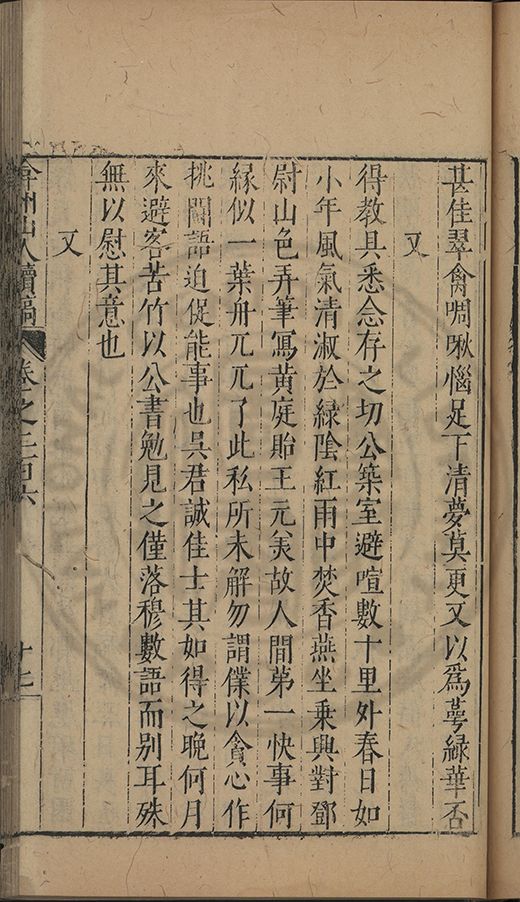 甚佳翠禽啁啾惱足下清夢莫更又以為萼緑華否
又
得教具悉念存之切公築室避喧數十里外春日如
小年風氣清淑於緑陰紅雨中焚香燕坐乘興對鄧
尉山色弄筆寫黃庭貽王元美故人間第一快事何
縁似一葉舟兀兀了此私所未解勿謂僕以貪心作
挑闘語迫促能事也吳君誠佳士其如得之晚何月
來避客苦竹以公書勉見之僅落穆數語而別耳殊
無以慰其意也
又
弇州山人續稿 卷之二百六 十七